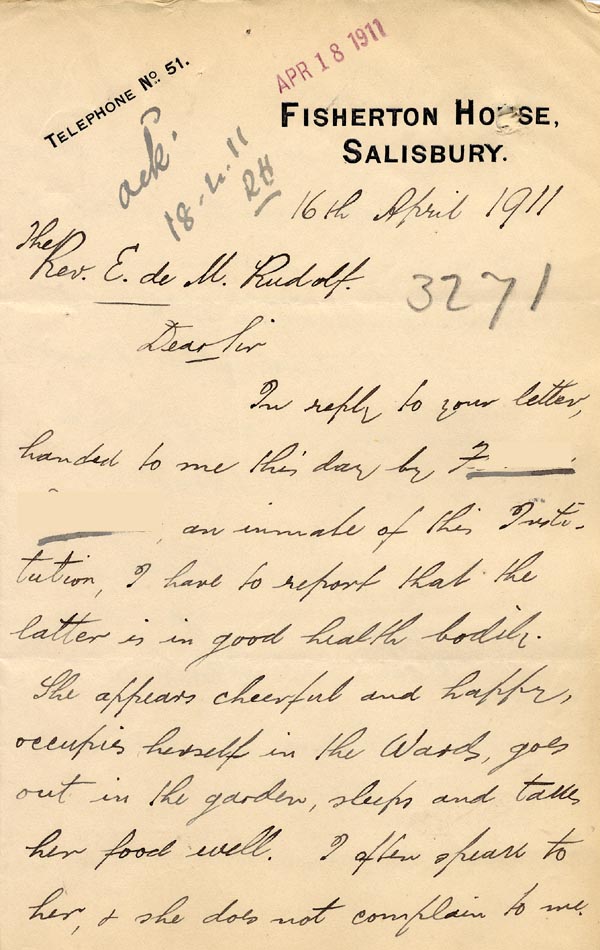 TELEPHONE No. 51.
APR 18 1911
FISHERTON HOUSE,
SALISBURY.
ack.
18.4.11
RH
16th April 1911
The
Rev. E. de M. Rudolf.
3271
Dear Sir
In reply to your letter,
handed to me this day by F
, an inmate of this Insti-
tution, I have to report that the
latter is in good health bodily.
She appears cheerful and happy,
occupies herself in the Wards, goes
out in the garden, sleeps and takes
her food well. I often speak to
her, & she does not complain to me.